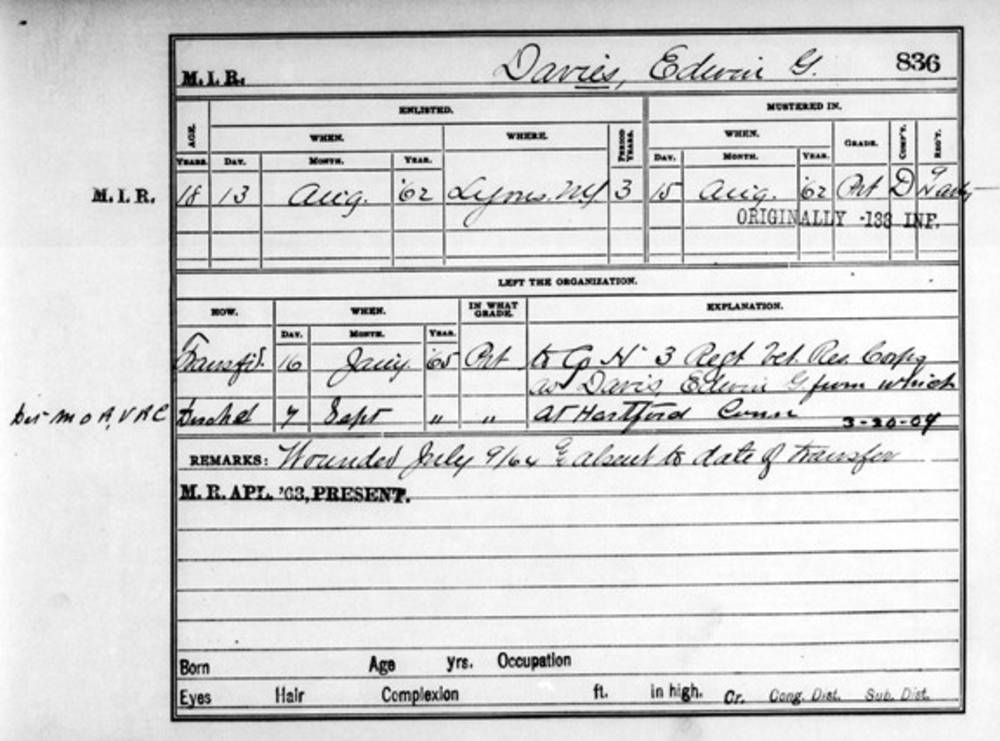 M. I. R. Davies, Edwin G. 836
ENLISTED. MUSTERED IN.
AGE. WHEN. WHERE. PERIOD YEARS. WHEN. GRADE. COMP'Y. REG'T.
YEARS. DAY. MONTH. YEAR. DAY. MONTH. YEAR.
M. I. R. 18 13 Aug. '62 Lyons. NY 3 15 Aug. '62 Pvt D 9
ORIGINALLY -138 INF.
LEFT THE ORGANIZATION.
HOW. WHEN. IN WHAT GRADE. EXPLANATION.
DAY. MONTH. YEAR.
Transfd. 16 Jany. '65 Pvt to Co H 3 Regt Vet. Res. Corps
as Davis Edwin G from which
Dischd 7 Sept " " at Hartford Conn 3-20-09
REMARKS: Wounded July 9/64 & absent to date of transfer
M. R. APL. '63, PRESENT.
Born Age yrs. Occupation
Eyes Hair Complexion ft. in high. Cr. Cong. Dist. Sub. Dist.